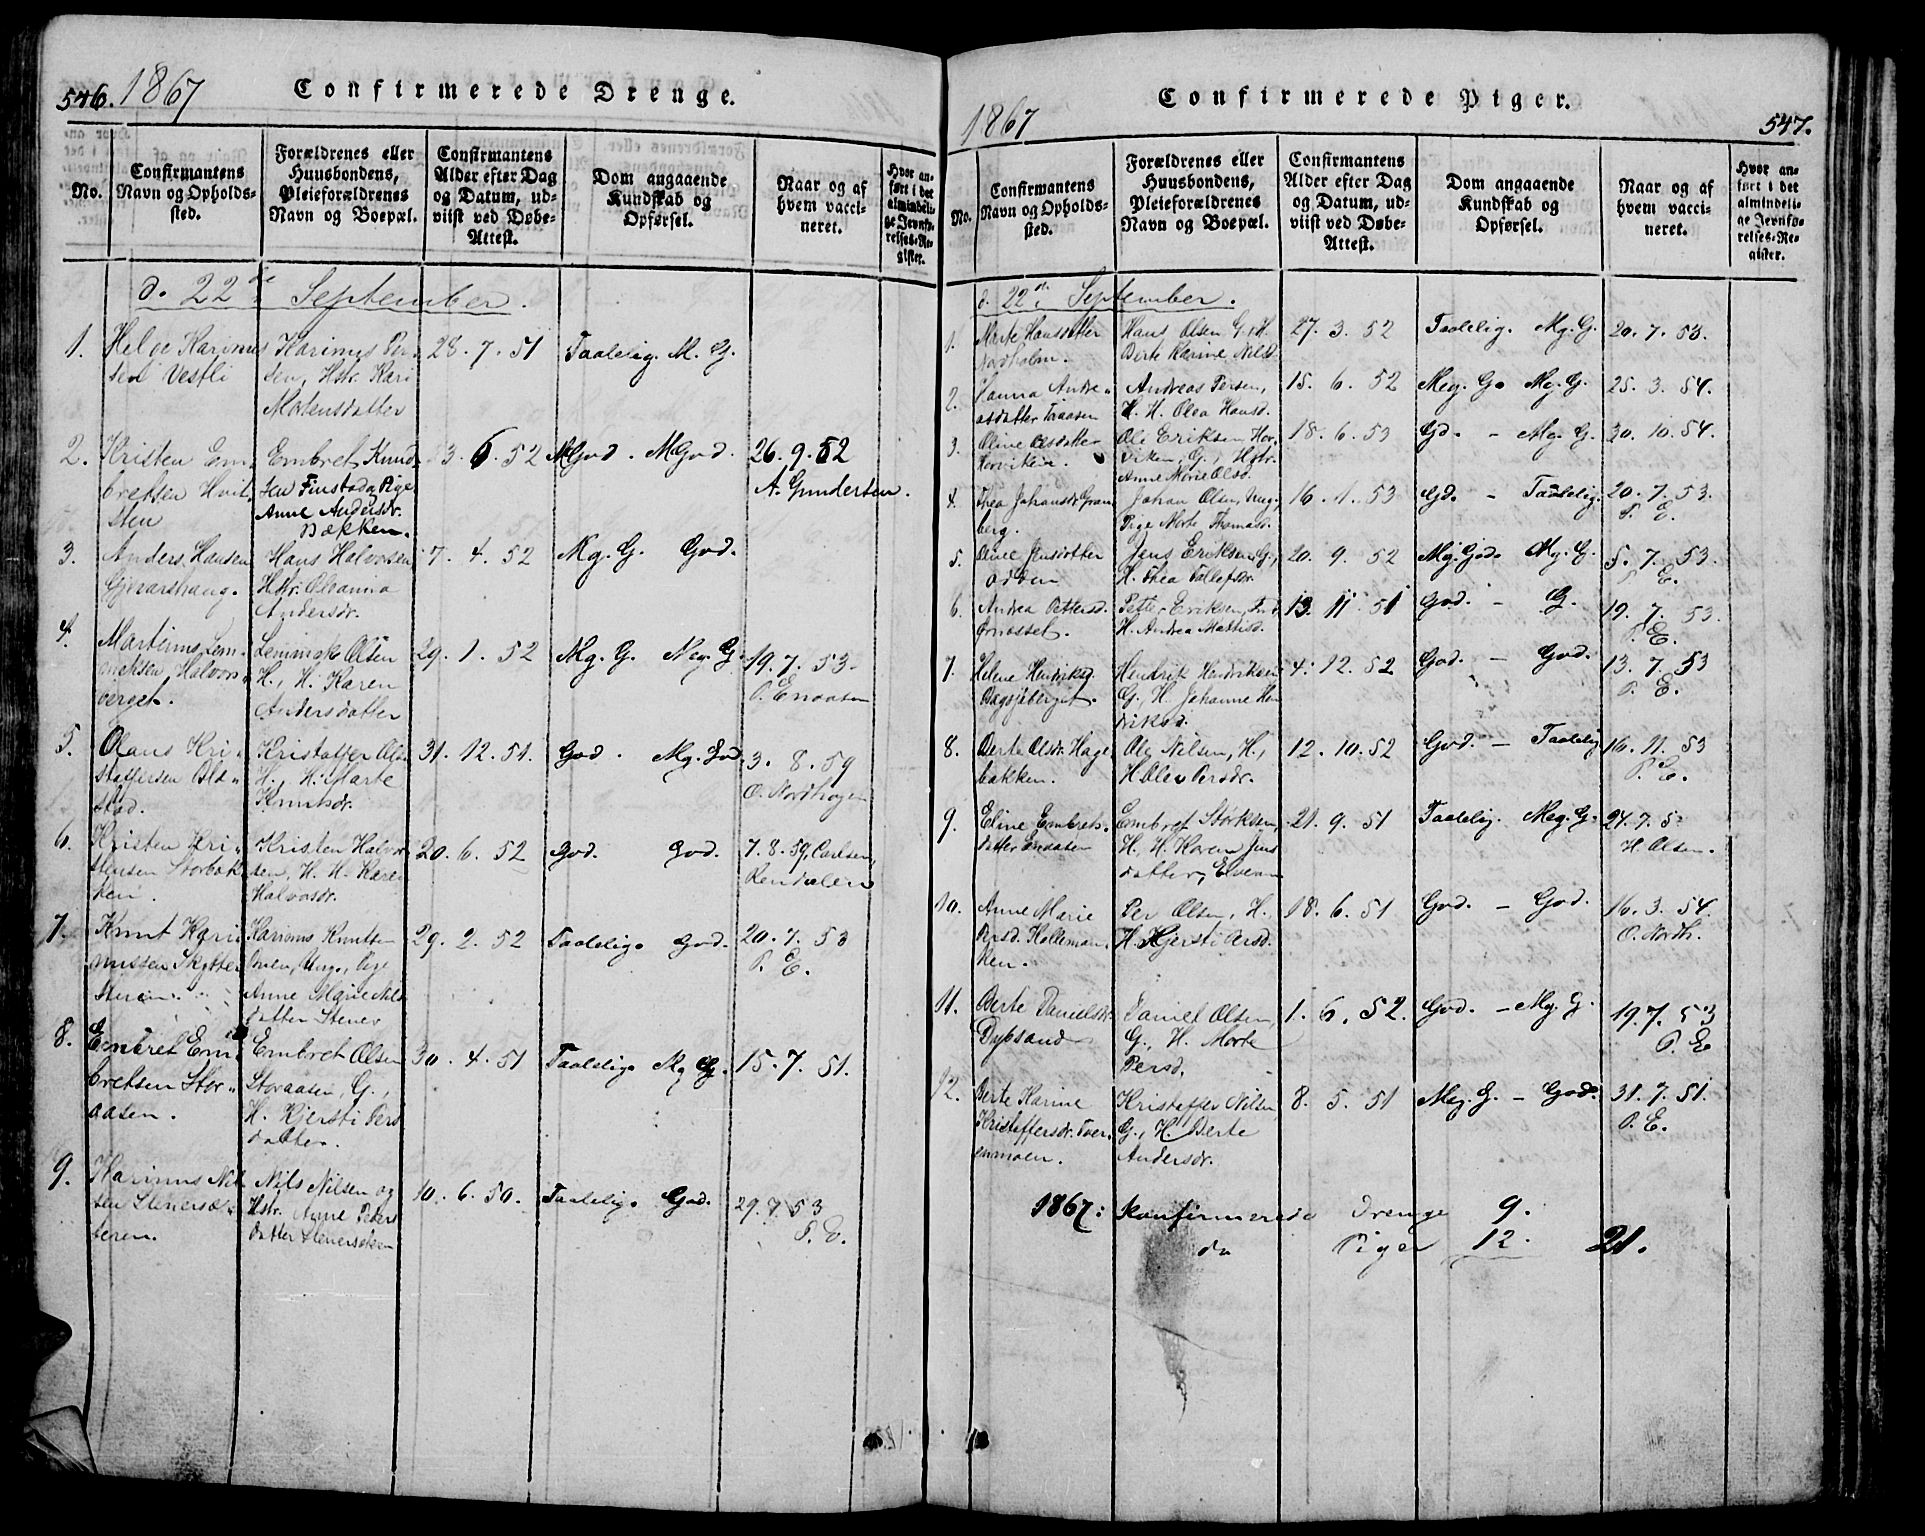 546. 1867 Confirmerede Drenge.
No.
Confirmantens
Navn og Opholds-
sted.
Forældrenes eller
Huusbondens,
Pleieforældrenes
Navn og Boepæl.
Confirmantens
Alder efter Dag
og Datum, ud-
viist ved Døbe-
Attest.
Dom angaaende
Kundskab og
Opførsel.
Naar og af
hvem vacci-
neret.
Hvor an-
ført i det
almindeli-
ge Jevnfø-
relses-Re-
gister.
d. 22de September.
1.
Helge Karinus
sen Vestli
Karinus Per-
sen, Hstr. Kari
Mortensdatter
28. 7. 51
Taalelig. M. G.
2.
Kristen Em-
bretsen Hvil-
sten
Embret Knud-
sen Finstad, Pige
Anne Andersdr.
Bækken.
3. 6. 52
MGod. MGod.
26. 9. 52
A. Gundersen.
3.
Anders Hansen
Gjevarshaug.
Hans Halvorsen
Hstr. Oleanna
Andersdr.
7. 4. 52
Mg. G. God.
4.
Martinus Lem-
miksen Halvors-
berget.
Lemmik Olsen
H., H. Karen
Andersdatter
29. 1. 52
Mg. G. Meg. G.
19. 7. 53.
P. Enaasen
5.
Olaus Kri-
stoffersen Ols-
stad.
Kristoffer Olsen
H., H. Marte
Knutsdr.
31. 12. 51.
God. Mg. God
3. 8. 59
O. Nordhagen
6.
Kristen Kri-
stensen Storbak-
ken.
Kristen Halvor-
sen, H. H. Karen
Halvorsdr.
20. 6. 52
God. God.
7. 8. 59, Carlsen,
Rendalen
7.
Knut Kari-
nussen Skytte-
steren.
Karinus Knutsen
Ungk., Pige
Anne Marie Nils-
datter Stener
29. 2. 52
Taalelig. God.
20. 7. 53
P. E.
8.
Embret Em-
bretsen Stor-
aasen.
Embret Olsen
Storaasen, G.,
H. Kjersti Pers-
datter.
30. 4. 51
Taalelig. Mg G.
15. 7. 51.
9.
Karinus Nil-
sen Stenersæ-
teren.
Nils Nilsen og
Hstr. Anne Peders-
datter Stenersæteren
10. 6. 50.
Taalelig. God.
29. 7 53
P. E.
1867 Confirmerede Piger. 547.
No.
Confirmantens
Navn og Opholds-
sted.
Forældrenes eller
Huusbondens,
Pleieforældrenes
Navn og Boepæl.
Confirmantens
Alder efter Dag
og Datum, ud-
viist ved Døbe-
Attest.
Dom angaaende
Kundskab og
Opførsel.
Naar og af
hvem vacci-
neret.
Hvor an-
ført i det
almindeli-
ge Jevnfø-
relses-Re-
gister.
d. 22de September.
1.
Marte Hansdatter
Nordholm.
Hans Olsen G. H.
Berte Karine Nilsd.
27. 3. 52
Taalelig. Mg. G.
20. 7. 53.
2.
Hanna Andre-
asdatter Traasen
Andreas Persen,
H. H. Olea Hansd.
15. 6. 52
Meg. G. Mg. G.
25. 3. 54.
3.
Oline Olsdatter
Horviken.
Ole Eriksen Hor-
viken, G., Hstr.
Anne Marie Olsd.
18. 6. 53
Gd. - Mg. G.
30. 10. 54.
4.
Thea Johansdr. Gran-
berg.
Johan Olsen, Ung.,
Pige Marte Thomasdr.
16. 1. 53
Gd. - Taalelig.
20. 7. 53.
P. E.
5.
Oline Jensdatter
Jens Eriksen G.,
H. Thea Tollefsdr.
20. 9. 52
Mg. God. Mg. G.
5. 7. 53.
P. E.
6.
Andrea Pettersd.
Petter Eriksen,
H. Andrea Mathisd.
13. 11. 51
God. - G.
19. 7. 53.
P. E.
7.
Helene Henriksd.
Bagsjøberget.
Hendrik Hendriksen
G., H. Johanne Hen-
driksd.
4. 12. 52
God. - God.
13. 7. 53
P. E.
8.
Berte Olsdr. Hage-
bakken.
Ole Nilsen, H.,
H. Olea Persdr.
12. 10. 52
God. - Taalelig
16. 11. 53
P. E.
9.
Eline Embrets-
datter Enaasen
Embret Størksen,
H., H. Karen Jens-
datter,
21. 9. 51
Taalelig. Meg. G.
24. 7. 5
H. Olsen.
10.
Anne Marie
Persd. Kolleman-
ken.
Per Olsen, H.
H. Kjersti Persd.
18. 6. 51
God. - God.
16. 3. 54.
O. Nordh.
11.
Berte Danielsdr.
Dypsand
Daniel Olsen,
G., H. Marte
Persd.
1. 6. 52.
God. - Mg. G.
19. 7. 53
P. E
12.
Berte Karine
Kristoffersdr. Tver-
enmoen.
Kristoffer Nilsen
G., H. Berte
Andersdr.
8. 5. 51
Meg. G. - God.
31. 7. 51.
P. E.
1867: Konfirmerede Drenge 9.
do Piger 12. 21.